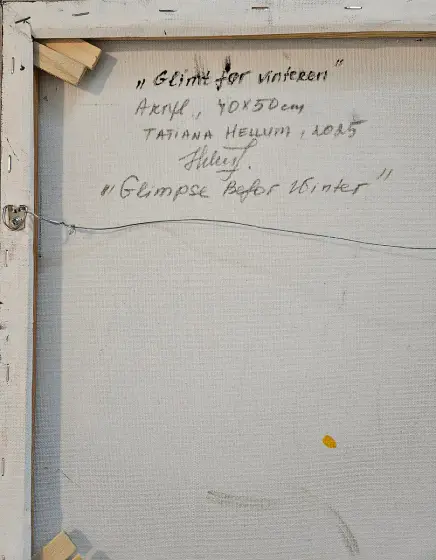 „Glimt før vinteren"
Akryl, 40x50cm
TATIANA HELLUM, 2025
"Glimpse Befor Winter"